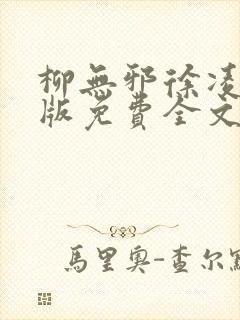 柳無邪徐凌
版免費全文
馬里奧-查尔